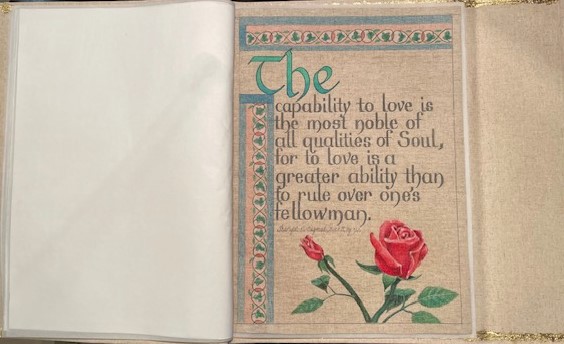 The
capability to love is
the most noble of
all qualities of Soul,
for to love is a
greater ability than
to rule over one's
fellowman.